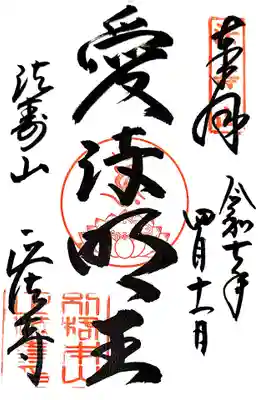 奉拝
令和七年
四月十一日
愛染明王
法寿山
正法寺
別格本山